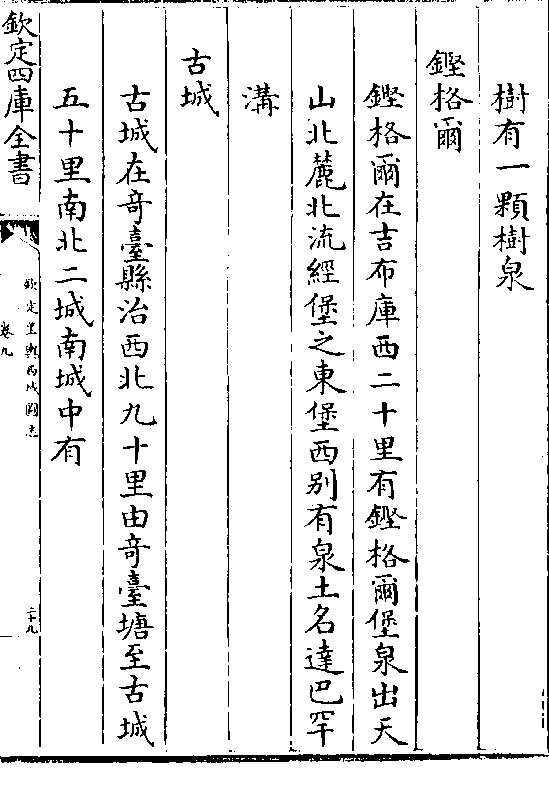 樹有一顆樹泉
鏗格爾
鏗格爾在吉布庫西二十里有鏗格爾堡泉出天
山北麓北流經堡之東堡西别有泉土名達巴罕
溝
古城
古城在竒臺縣治西北九十里由竒臺塘至古城
五十里南北二城南城中有
欽定四庫全書
欽定皇輿西域圖志
卷九
二十九